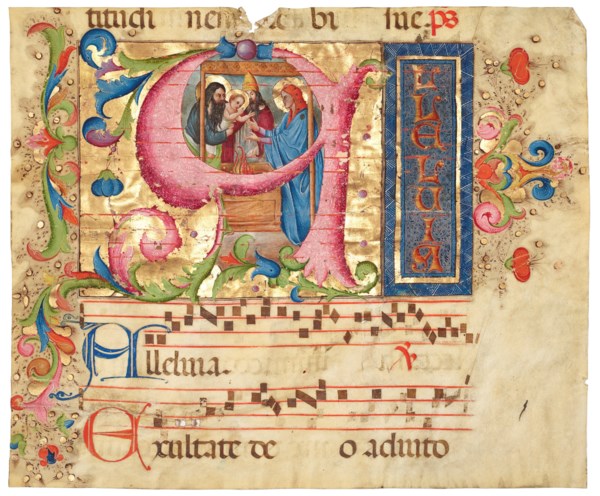 titudi ps
A LLELVIA
Alleluia. ℣
Exultate de o adiuto